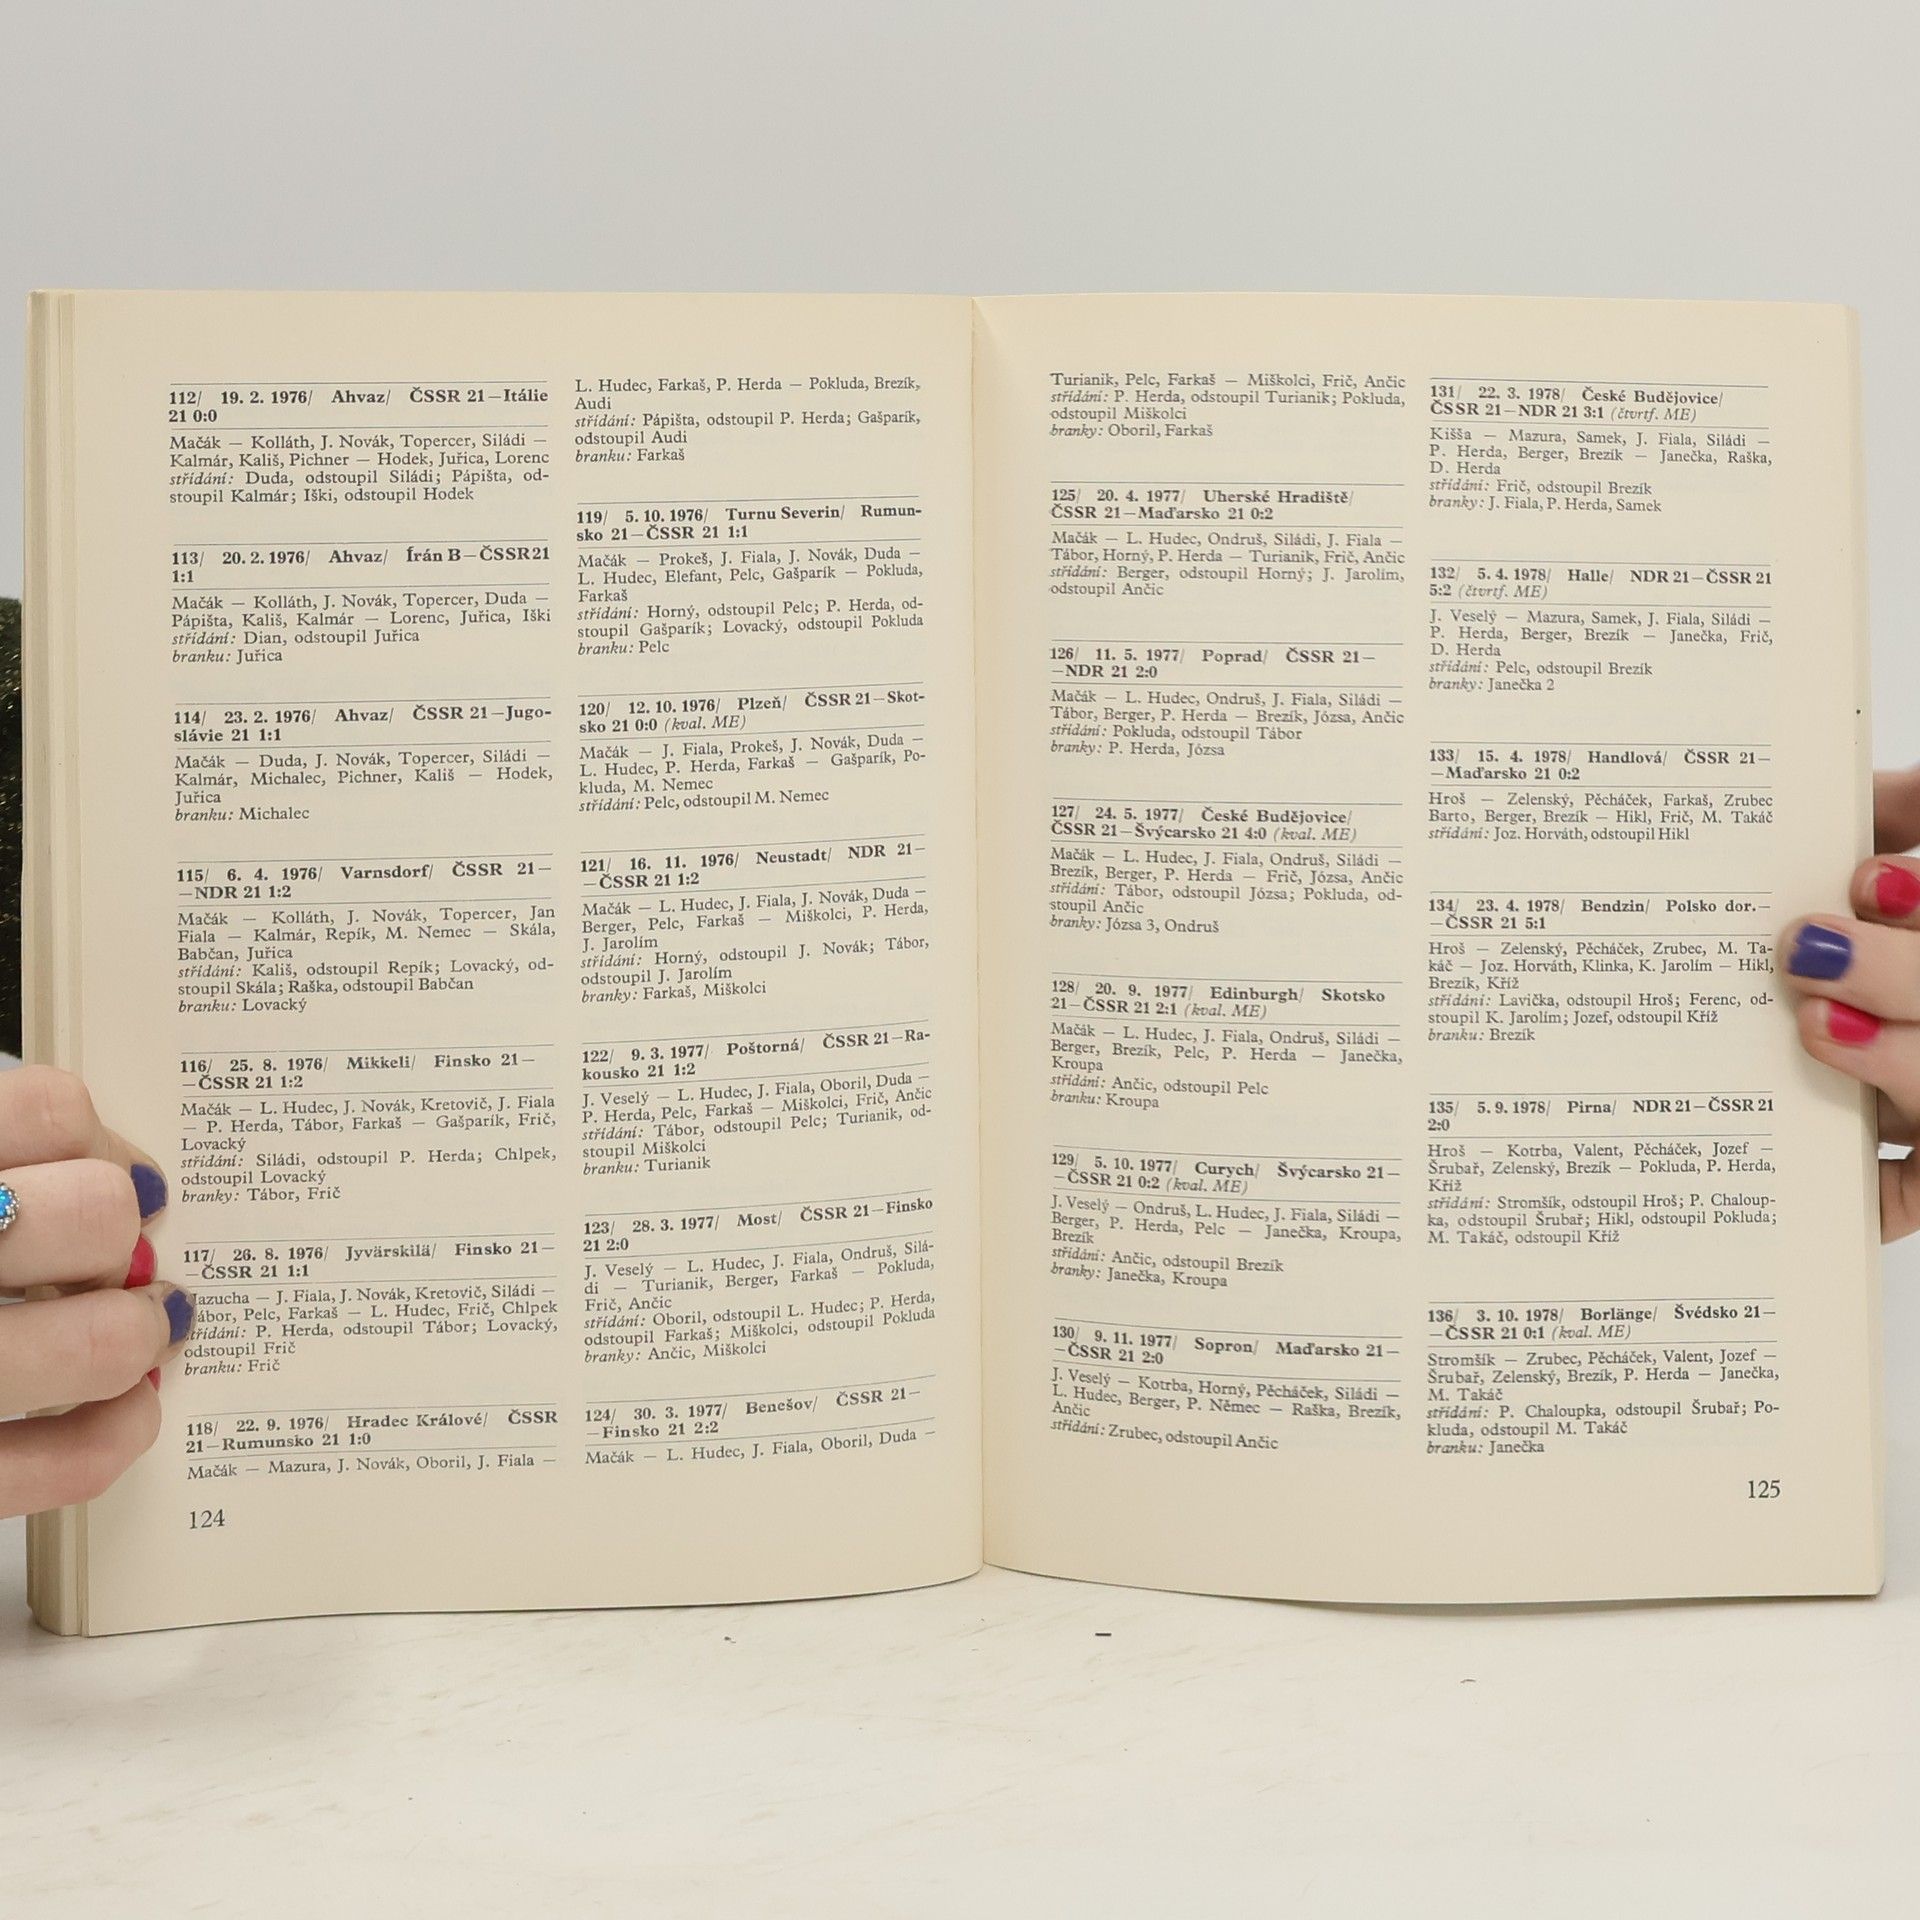 112/ 19. 2. 1976/ Ahvaz/ ČSSR 21—Itálie
21 0:0
Mačák — Kolláth, J. Novák, Topercer, Siládi —
Kalmár, Kališ, Pichner — Hodek, Juřica, Lorenc
střídání: Duda, odstoupil Siládi; Pápišta, od-
stoupil Kalmár; Iški, odstoupil Hodek
113/ 20. 2. 1976/ Ahvaz/ Írán B—ČSSR 21
1:1
Mačák — Kolláth, J. Novák, Topercer, Duda —
Pápišta, Kališ, Kalmár — Lorenc, Juřica, Iški
střídání: Dian, odstoupil Juřica
branku: Juřica
114/ 23. 2. 1976/ Ahvaz/ ČSSR 21—Jugo-
slávie 21 1:1
Mačák — Duda, J. Novák, Topercer, Siládi —
Kalmár, Michalec, Pichner, Kališ — Hodek,
Juřica
branku: Michalec
115/ 6. 4. 1976/ Varnsdorf/ ČSSR 21—
—NDR 21 1:2
Mačák — Kolláth, J. Novák, Topercer, Jan
Fiala — Kalmár, Repík, M. Nemec — Skála,
Babčan, Juřica
střídání: Kališ, odstoupil Repík; Lovacký, od-
stoupil Skála; Raška, odstoupil Babčan
branku: Lovacký
116/ 25. 8. 1976/ Mikkeli/ Finsko 21—
—ČSSR 21 1:2
Mačák — L. Hudec, J. Novák, Kretovič, J. Fiala
— P. Herda, Tábor, Farkaš — Gašparík, Frič,
Lovacký
střídání: Siládi, odstoupil P. Herda; Chlpek,
odstoupil Lovacký
branky: Tábor, Frič
117/ 26. 8. 1976/ Jyvärskilä/ Finsko 21—
—ČSSR 21 1:1
azucha — J. Fiala, J. Novák, Kretovič, Siládi —
ábor, Pelc, Farkaš — L. Hudec, Frič, Chlpek
střídání: P. Herda, odstoupil Tábor; Lovacký,
odstoupil Frič
branku: Frič
118/ 22. 9. 1976/ Hradec Králové/ ČSSR
21—Rumunsko 21 1:0
Mačák — Mazura, J. Novák, Oboril, J. Fiala —
124
L. Hudec, Farkaš, P. Herda — Pokluda, Brezík,
Audi
střídání: Pápišta, odstoupil P. Herda; Gašparík,
odstoupil Audi
branku: Farkaš
119/ 5. 10. 1976/ Turnu Severin/ Rumun-
sko 21—ČSSR 21 1:1
Mačák — Prokeš, J. Fiala, J. Novák, Duda —
L. Hudec, Elefant, Pelc, Gašparík — Pokluda,
Farkaš
střídání: Horný, odstoupil Pelc; P. Herda, od-
stoupil Gašparík; Lovacký, odstoupil Pokluda
branku: Pelc
120/ 12. 10. 1976/ Plzeň/ ČSSR 21—Skot-
sko 21 0:0 (kval. ME)
Mačák — J. Fiala, Prokeš, J. Novák, Duda —
L. Hudec, P. Herda, Farkaš — Gašparík, Po-
kluda, M. Nemec
střídání: Pelc, odstoupil M. Nemec
121/ 16. 11. 1976/ Neustadt/ NDR 21—
—ČSSR 21 1:2
Mačák — L. Hudec, J. Fiala, J. Novák, Duda —
Berger, Pelc, Farkaš — Miškolci, P. Herda,
J. Jarolím
střídání: Horný, odstoupil J. Novák; Tábor,
odstoupil J. Jarolím
branky: Farkaš, Miškolci
122/ 9. 3. 1977/ Poštorná/ ČSSR 21—Ra-
kousko 21 1:2
J. Veselý — L. Hudec, J. Fiala, Oboril, Duda —
P. Herda, Pelc, Farkaš — Miškolci, Frič, Ančic
střídání: Tábor, odstoupil Pelc; Turianik, od-
stoupil Miškolci
branku: Turianik
123/ 28. 3. 1977/ Most/ ČSSR 21—Finsko
21 2:0
J. Veselý — L. Hudec, J. Fiala, Ondruš, Silá-
di — Turianik, Berger, Farkaš — Pokluda,
Frič, Ančic
střídání: Oboril, odstoupil L. Hudec; P. Herda,
odstoupil Farkaš; Miškolci, odstoupil Pokluda
branky: Ančic, Miškolci
124/ 30. 3. 1977/ Benešov/ ČSSR 21—
—Finsko 21 2:2
Mačák — L. Hudec, J. Fiala, Oboril, Duda —
Turianik, Pelc, Farkaš — Miškolci, Frič, Ančic
střídání: P. Herda, odstoupil Turianik; Pokluda,
odstoupil Miškolci
branky: Oboril, Farkaš
125/ 20. 4. 1977/ Uherské Hradiště/
ČSSR 21—Maďarsko 21 0:2
Mačák — L. Hudec, Ondruš, Siládi, J. Fiala —
Tábor, Horný, P. Herda — Turianik, Frič, Ančic
střídání: Berger, odstoupil Horný; J. Jarolím,
odstoupil Ančic
126/ 11. 5. 1977/ Poprad/ ČSSR 21—
—NDR 21 2:0
Mačák — L. Hudec, Ondruš, J. Fiala, Siládi —
Tábor, Berger, P. Herda — Brezík, Józsa, Ančic
střídání: Pokluda, odstoupil Tábor
branky: P. Herda, Józsa
127/ 24. 5. 1977/ České Budějovice/
ČSSR 21—Švýcarsko 21 4:0 (kval. ME)
Mačák — L. Hudec, J. Fiala, Ondruš, Siládi —
Brezík, Berger, P. Herda — Frič, Józsa, Ančic
střídání: Tábor, odstoupil Józsa; Pokluda, od-
stoupil Ančic
branky: Józsa 3, Ondruš
128/ 20. 9. 1977/ Edinburgh/ Skotsko
21—ČSSR 21 2:1 (kval. ME)
Mačák — L. Hudec, J. Fiala, Ondruš, Siládi —
Berger, Brezík, Pelc, P. Herda — Janečka,
Kroupa
střídání: Ančic, odstoupil Pelc
branku: Kroupa
129/ 5. 10. 1977/ Curych/ Švýcarsko 21—
—ČSSR 21 0:2 (kval. ME)
J. Veselý — Ondruš, L. Hudec, J. Fiala, Siládi —
Berger, P. Herda, Pelc — Janečka, Kroupa,
Brezík
střídání: Ančic, odstoupil Brezík
branky: Janečka, Kroupa
130/ 9. 11. 1977/ Sopron/ Maďarsko 21—
—ČSSR 21 2:0
J. Veselý — Kotrba, Horný, Pěcháček, Siládi —
L. Hudec, Berger, P. Němec — Raška, Brezík,
Ančic
střídání: Zrubec, odstoupil Ančic
131/ 22. 3. 1978/ České Budějovice/
ČSSR 21—NDR 21 3:1 (čtvrtf. ME)
Kišša — Mazura, Samek, J. Fiala, Siládi —
P. Herda, Berger, Brezík — Janečka, Raška,
D. Herda
střídání: Frič, odstoupil Brezík
branky: J. Fiala, P. Herda, Samek
132/ 5. 4. 1978/ Halle/ NDR 21—ČSSR 21
5:2 (čtvrtf. ME)
J. Veselý — Mazura, Samek, J. Fiala, Siládi —
P. Herda, Berger, Brezík — Janečka, Frič,
D. Herda
střídání: Pelc, odstoupil Brezík
branky: Janečka 2
133/ 15. 4. 1978/ Handlová/ ČSSR 21—
—Maďarsko 21 0:2
Hroš — Zelenský, Pěcháček, Farkaš, Zrubec
Barto, Berger, Brezík — Hikl, Frič, M. Takáč
střídání: Joz. Horváth, odstoupil Hikl
134/ 23. 4. 1978/ Bendzin/ Polsko dor.—
—ČSSR 21 5:1
Hroš — Zelenský, Pěcháček, Zrubec, M. Ta-
káč — Joz. Horváth, Klinka, K. Jarolím — Hikl,
Brezík, Kříž
střídání: Lavička, odstoupil Hroš; Ferenc, od-
stoupil K. Jarolím; Jozef, odstoupil Kříž
branku: Brezík
135/ 5. 9. 1978/ Pirna/ NDR 21—ČSSR 21
2:0
Hroš — Kotrba, Valent, Pěcháček, Jozef —
Šrubař, Zelenský, Brezík — Pokluda, P. Herda,
Kříž
střídání: Stromšík, odstoupil Hroš; P. Chaloup-
ka, odstoupil Šrubař; Hikl, odstoupil Pokluda;
M. Takáč, odstoupil Kříž
136/ 3. 10. 1978/ Borlänge/ Švédsko 21—
—ČSSR 21 0:1 (kval. ME)
Stromšík — Zrubec, Pěcháček, Valent, Jozef —
Šrubař, Zelenský, Brezík, P. Herda — Janečka,
M. Takáč
střídání: P. Chaloupka, odstoupil Šrubař; Po-
kluda, odstoupil M. Takáč
branku: Janečka
125